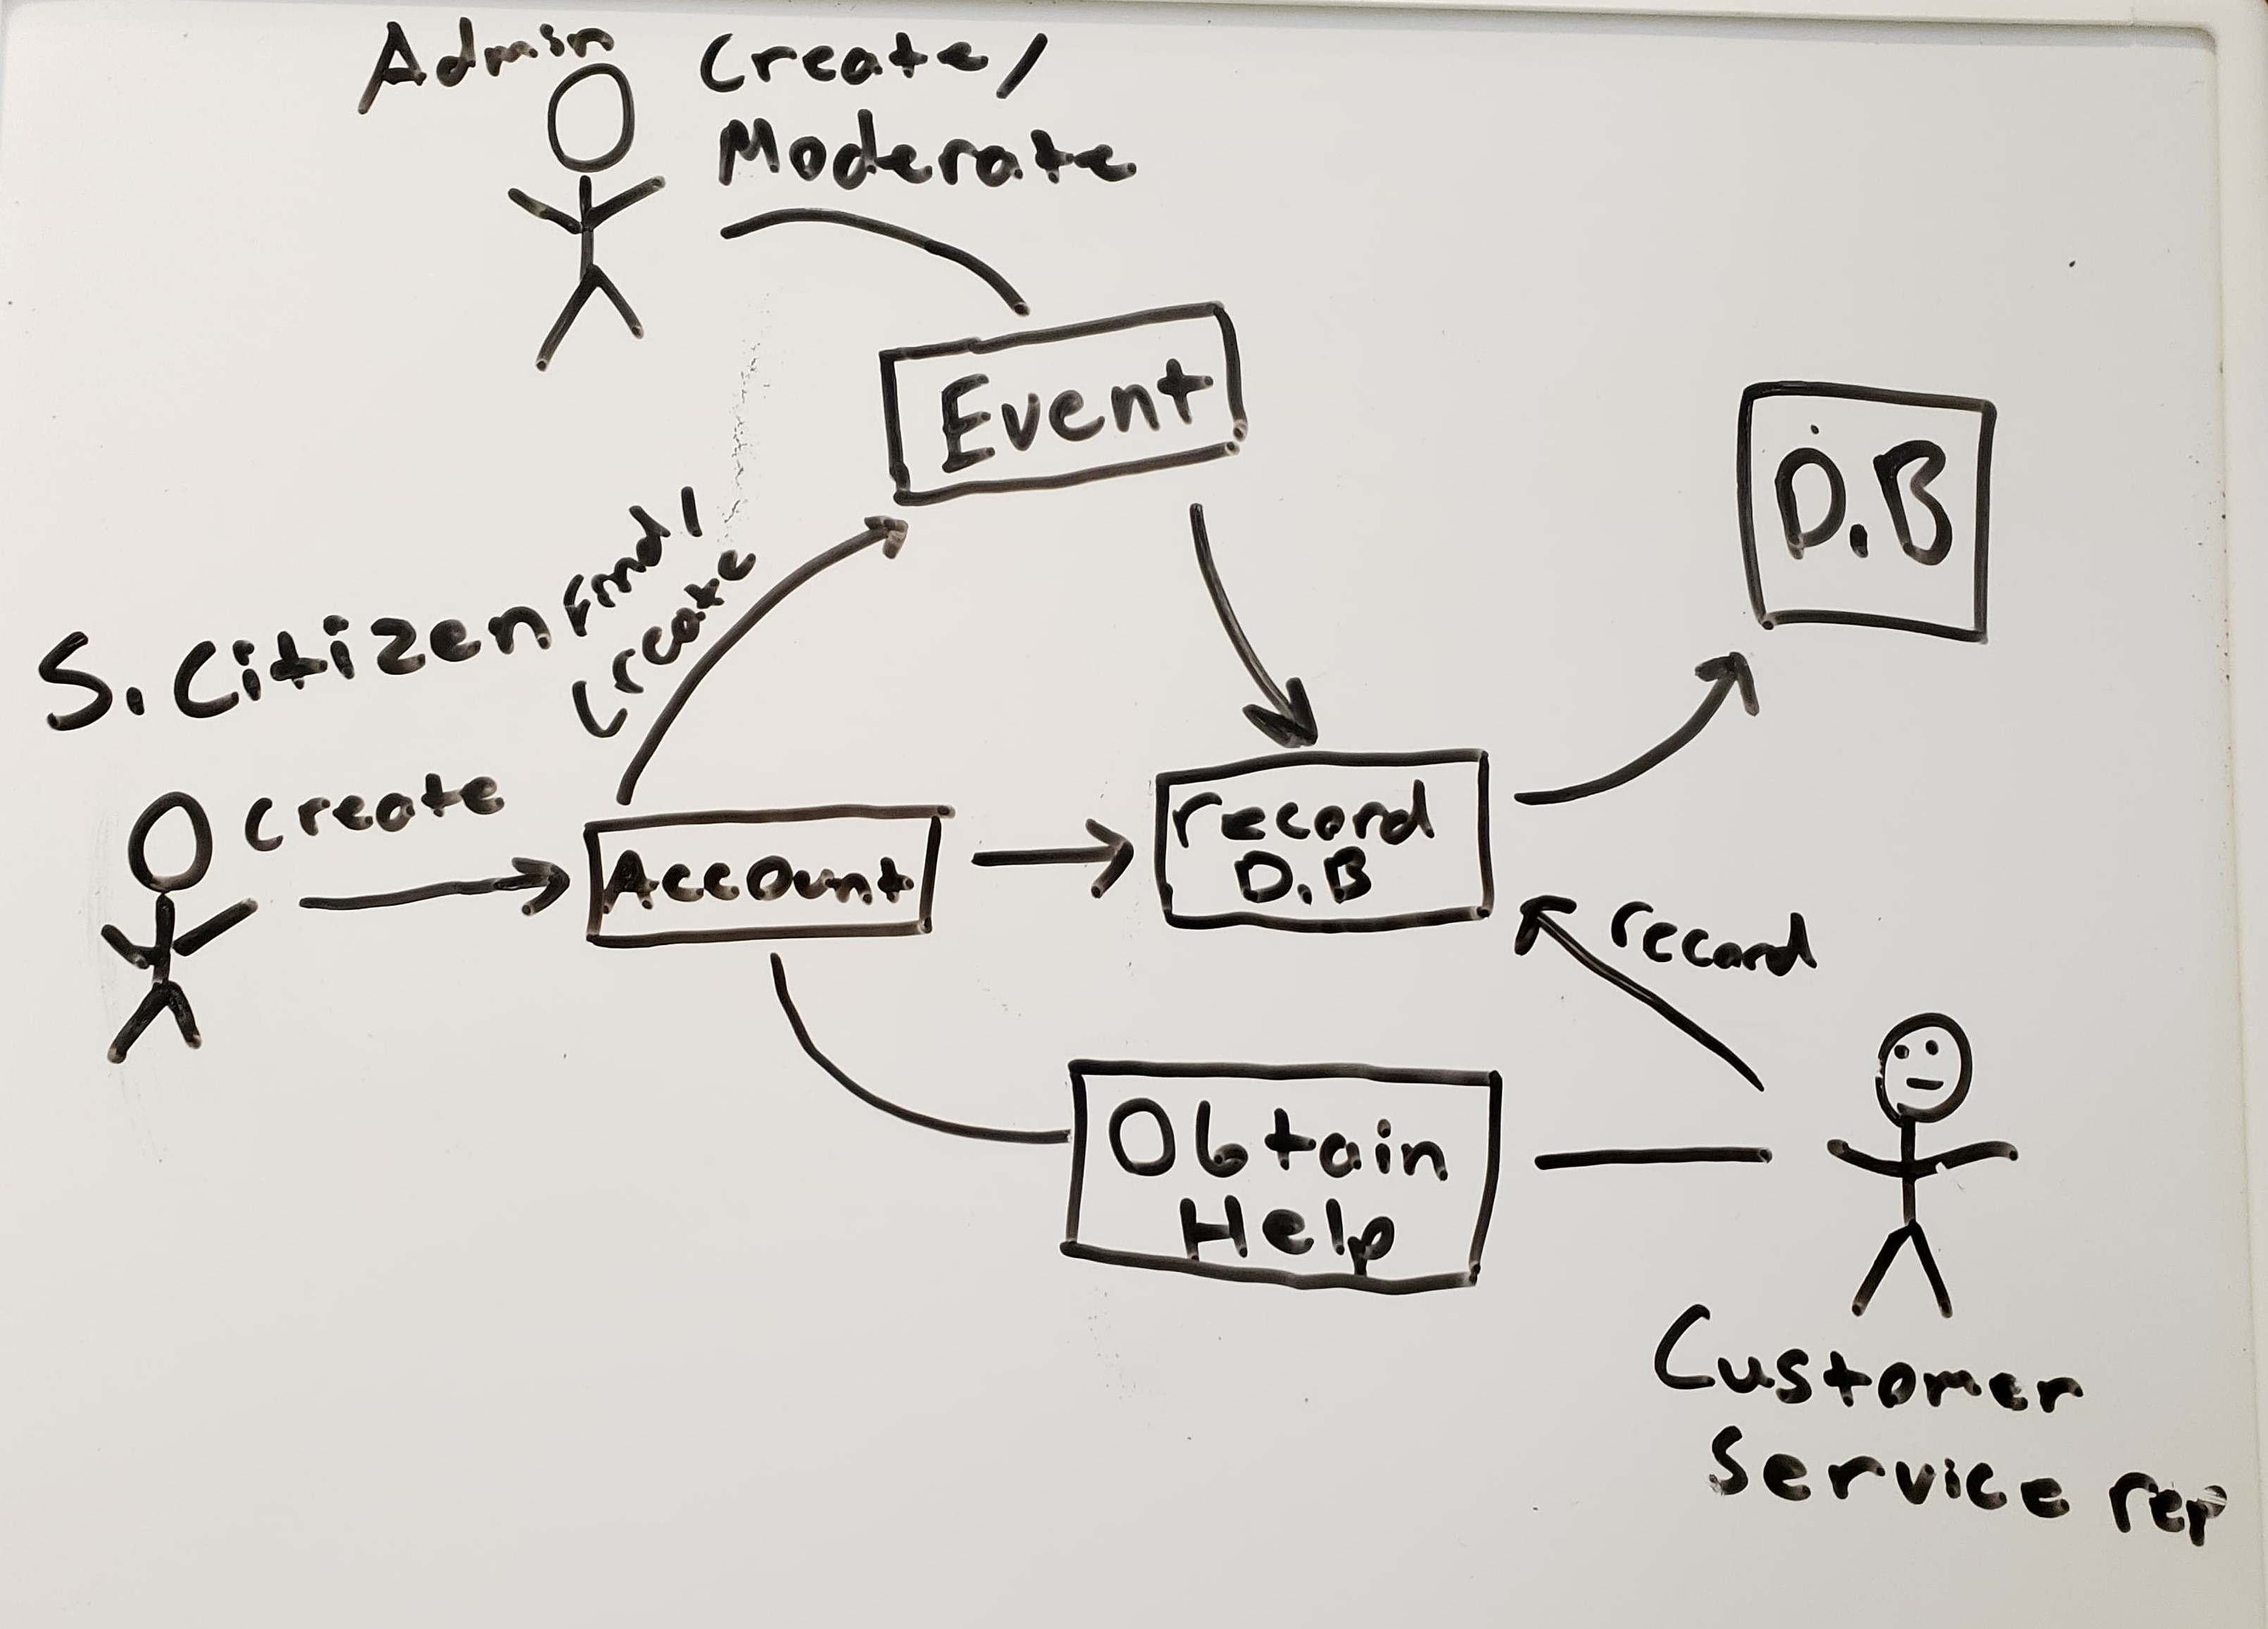 Admin
Create/
Moderate
Event
D.B
S. Citizen
Find/
Create
create
Account
record
D.B
record
Obtain
Help
Customer
Service rep